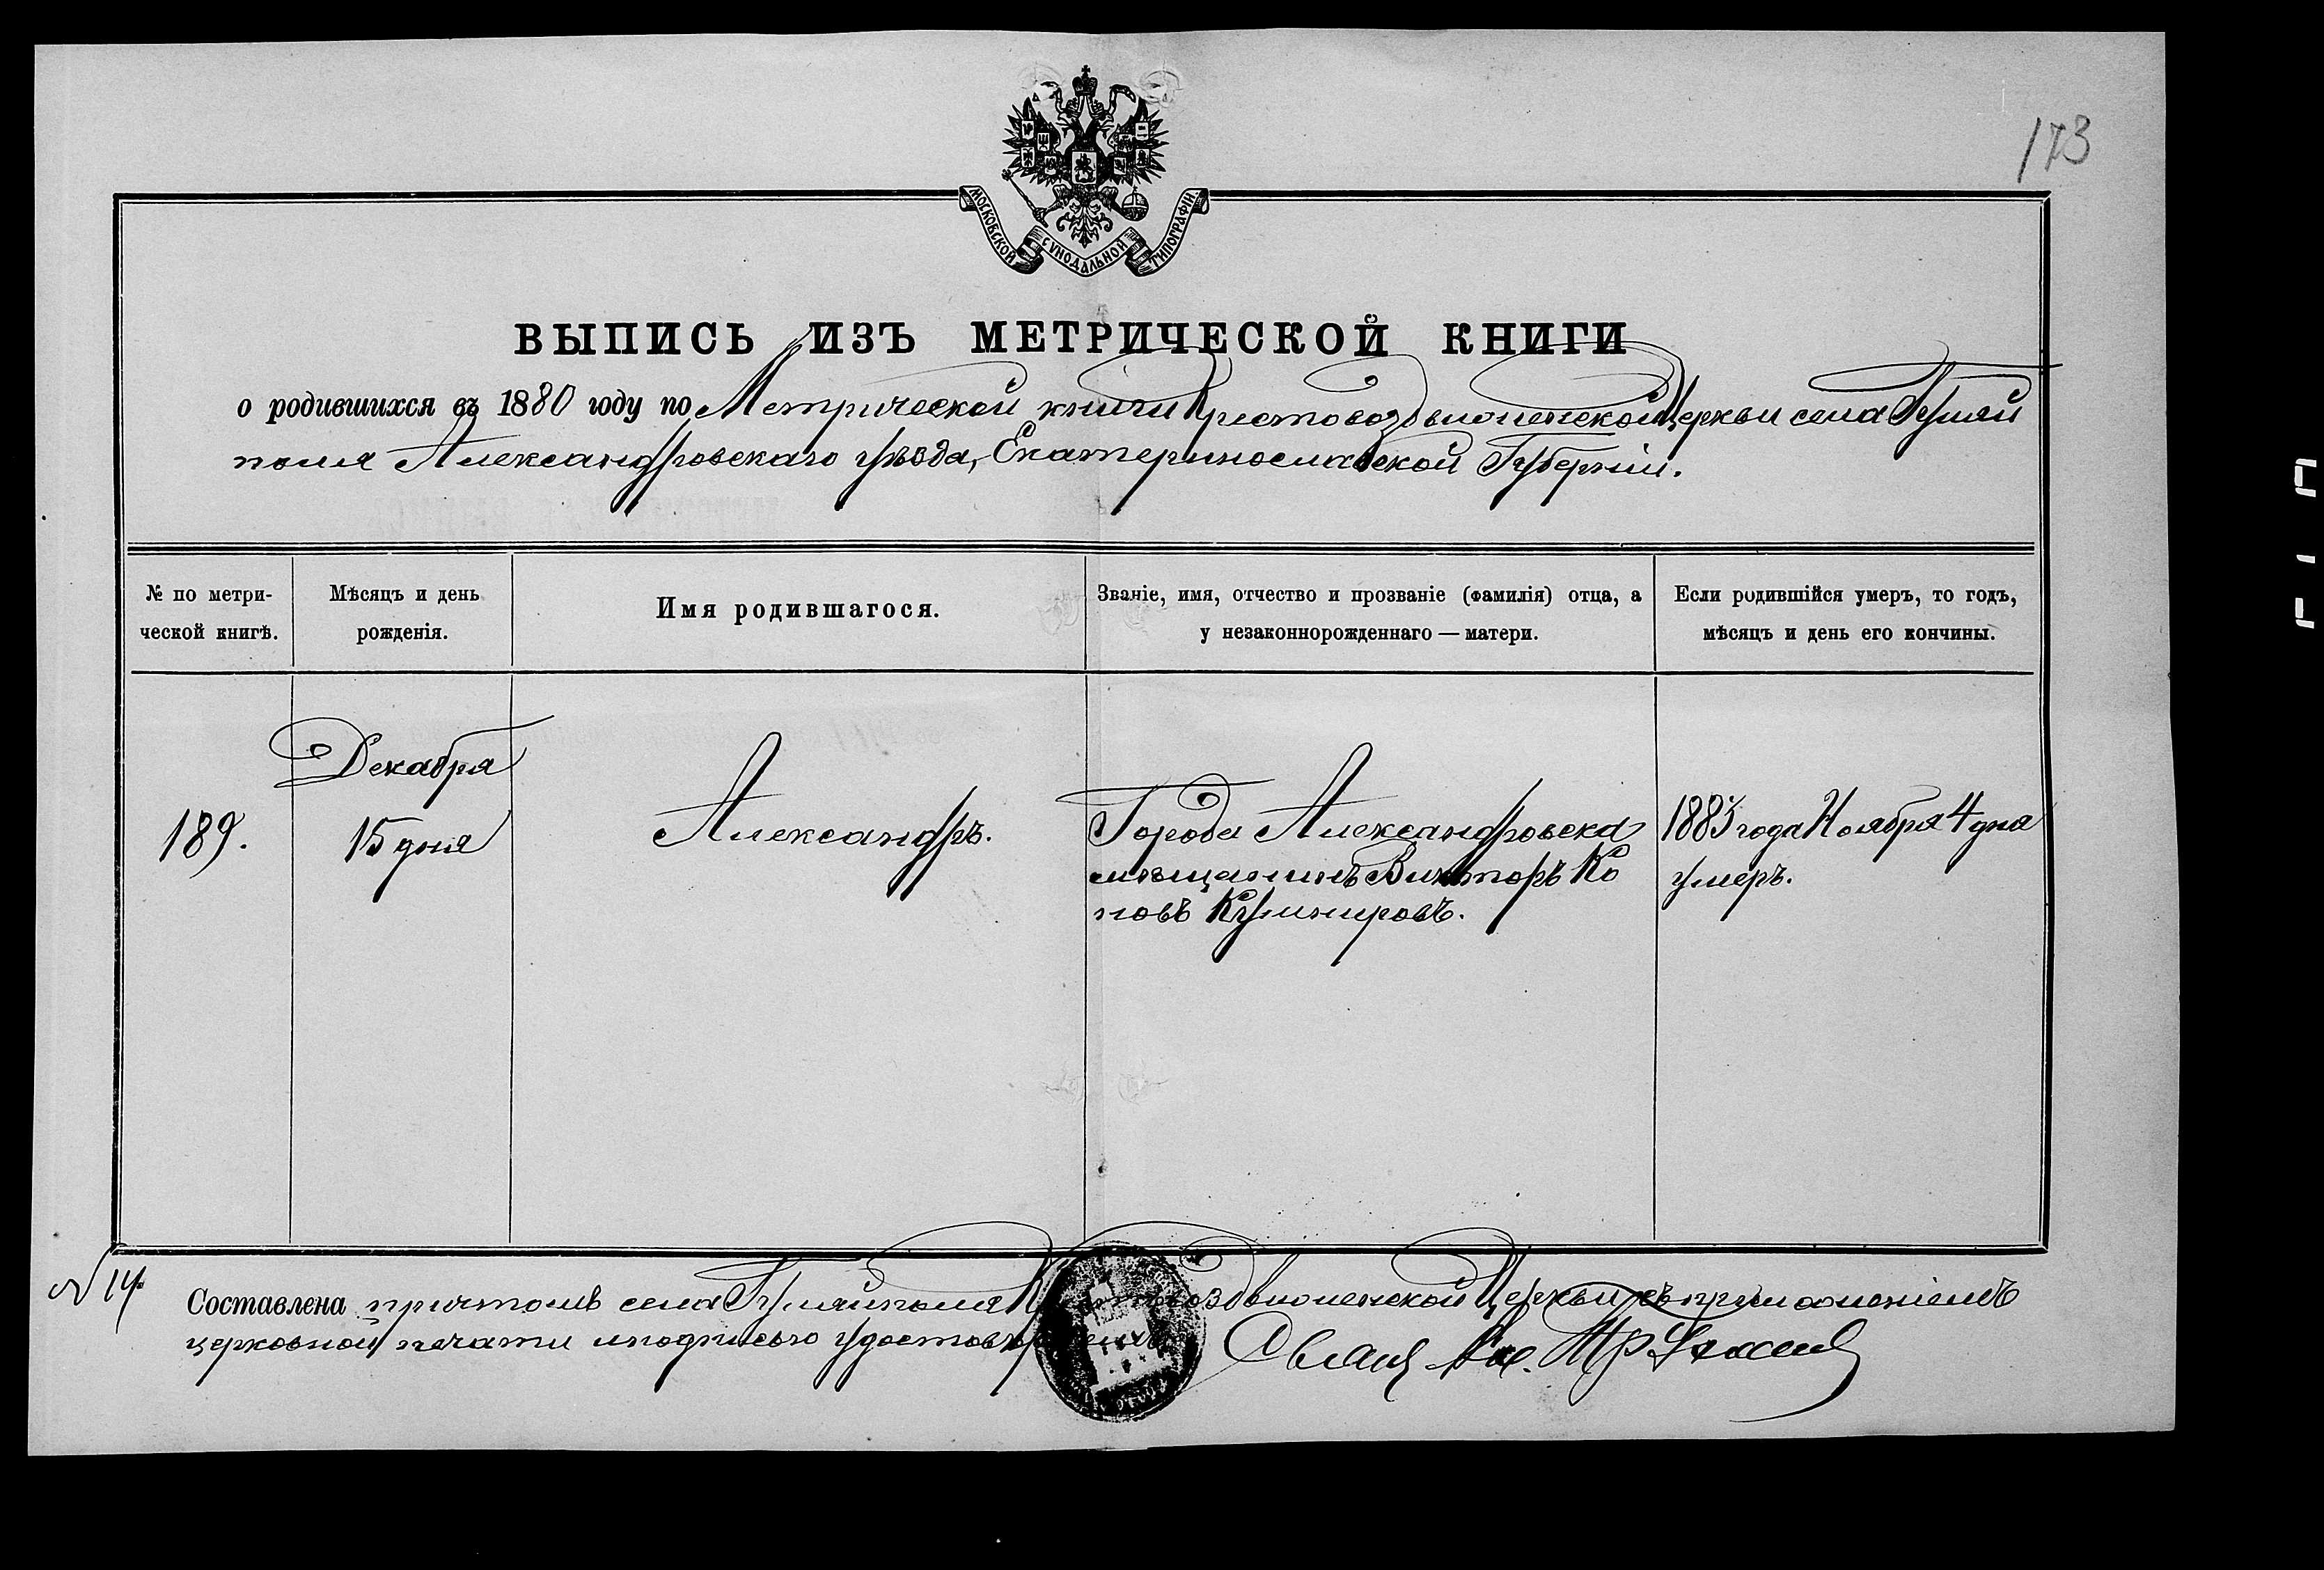 173
МОСКОВСКОЙ СѴНОДАЛЬНОЙ ТИПОГРАФІИ.
ВЫПИСЬ ИЗЪ МЕТРИЧЕСКОЙ КНИГИ
о родившихся въ 1880 году по Метрической книги Крестовоздвиженской Церкви села Гуляй
поля Александровскаго уѣзда, Екатеринославской Губерніи.
№ по метри-
ческой книгѣ.
Мѣсяцъ и день
рожденія.
Имя родившагося.
Званіе, имя, отчество и прозваніе (фамилія) отца, а
у незаконнорожденнаго — матери.
Если родившійся умеръ, то годъ,
мѣсяцъ и день его кончины.
189.
Декабря
15 дня
Александръ.
Города Александровска
мѣщанинъ Викторъ Ко
новъ
1883 года Ноября 4 дня
умеръ.
№ 14
Составлена причтомъ села Гуляйполя Крестовоздвиженской Церкви съ приложеніемъ
церковной печати и подписью
Свящ.